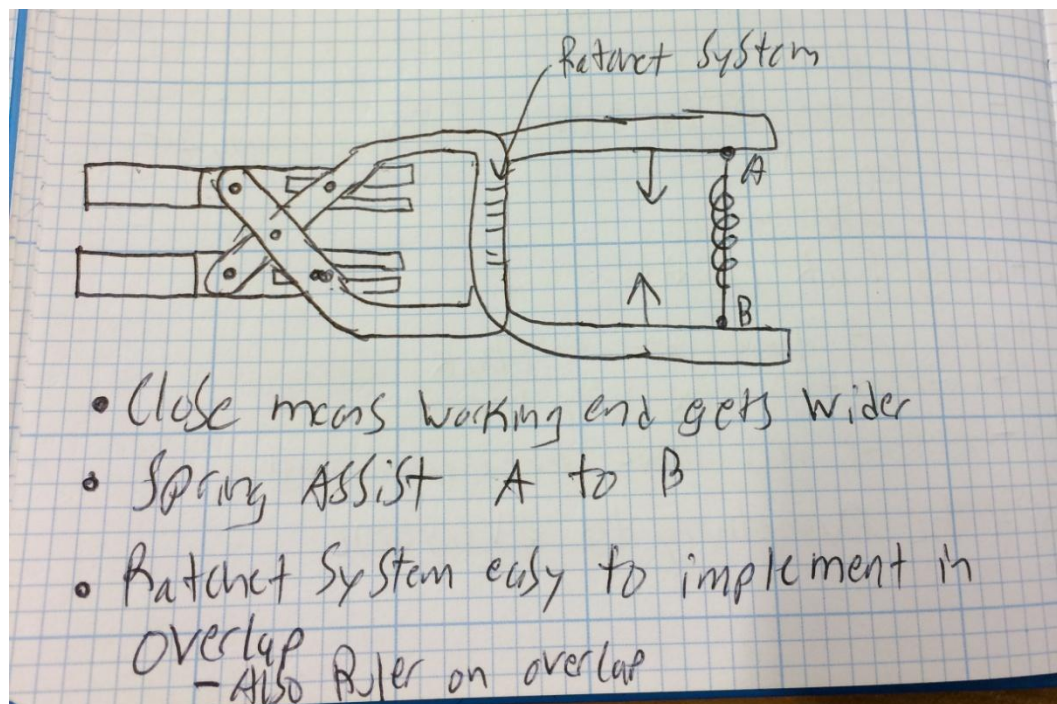 Ratchet System
A
B
• Close means working end gets wider
• Spring Assist A to B
• Ratchet System easy to implement in
overlap
- Also Ruler on overlap